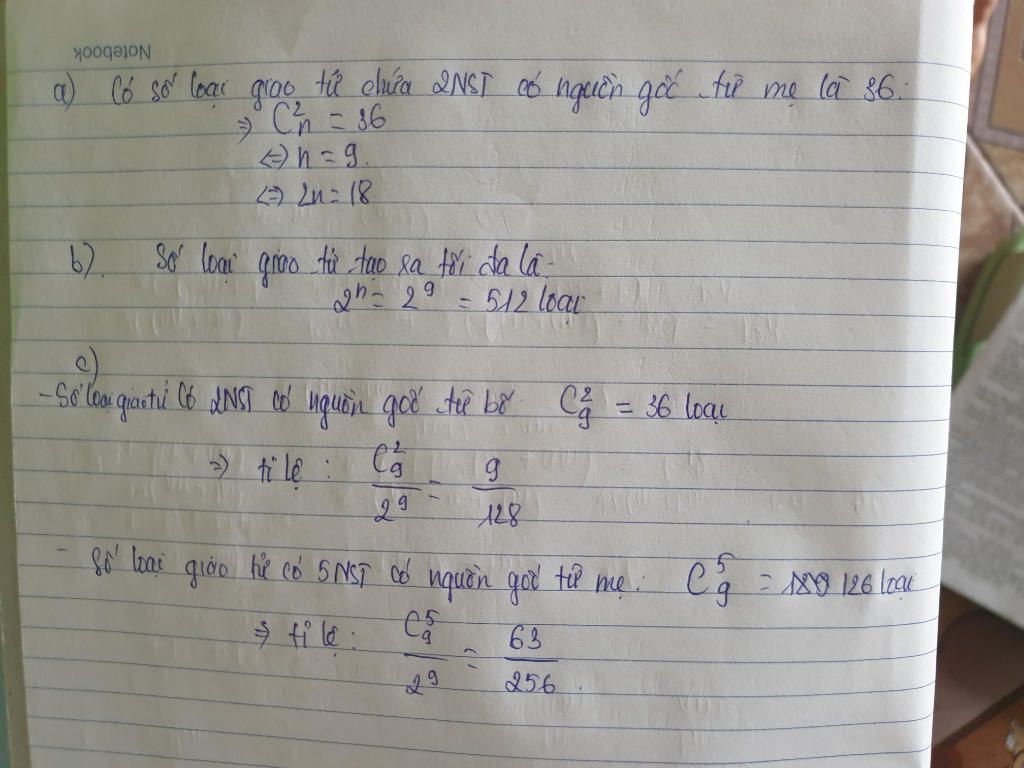 Notebook
a) Có số loại giao tử chứa 2NST có nguồn gốc từ mẹ là 36.
⇒ C²ₙ = 36
⇔ n = 9.
⇔ 2n = 18
b). Số loại giao tử tạo ra tối đa là
2ⁿ = 2⁹ = 512 loại
c)
- Số loại giao tử Có 2NST có nguồn gốc từ bố C²₉ = 36 loại
⇒ tỉ lệ : C²₉ / 2⁹ = 9 / 128
- Số loại giao tử có 5NST có nguồn gốc từ mẹ. C⁵₉ = 126 loại
⇒ tỉ lệ : C⁵₉ / 2⁹ = 63 / 256.